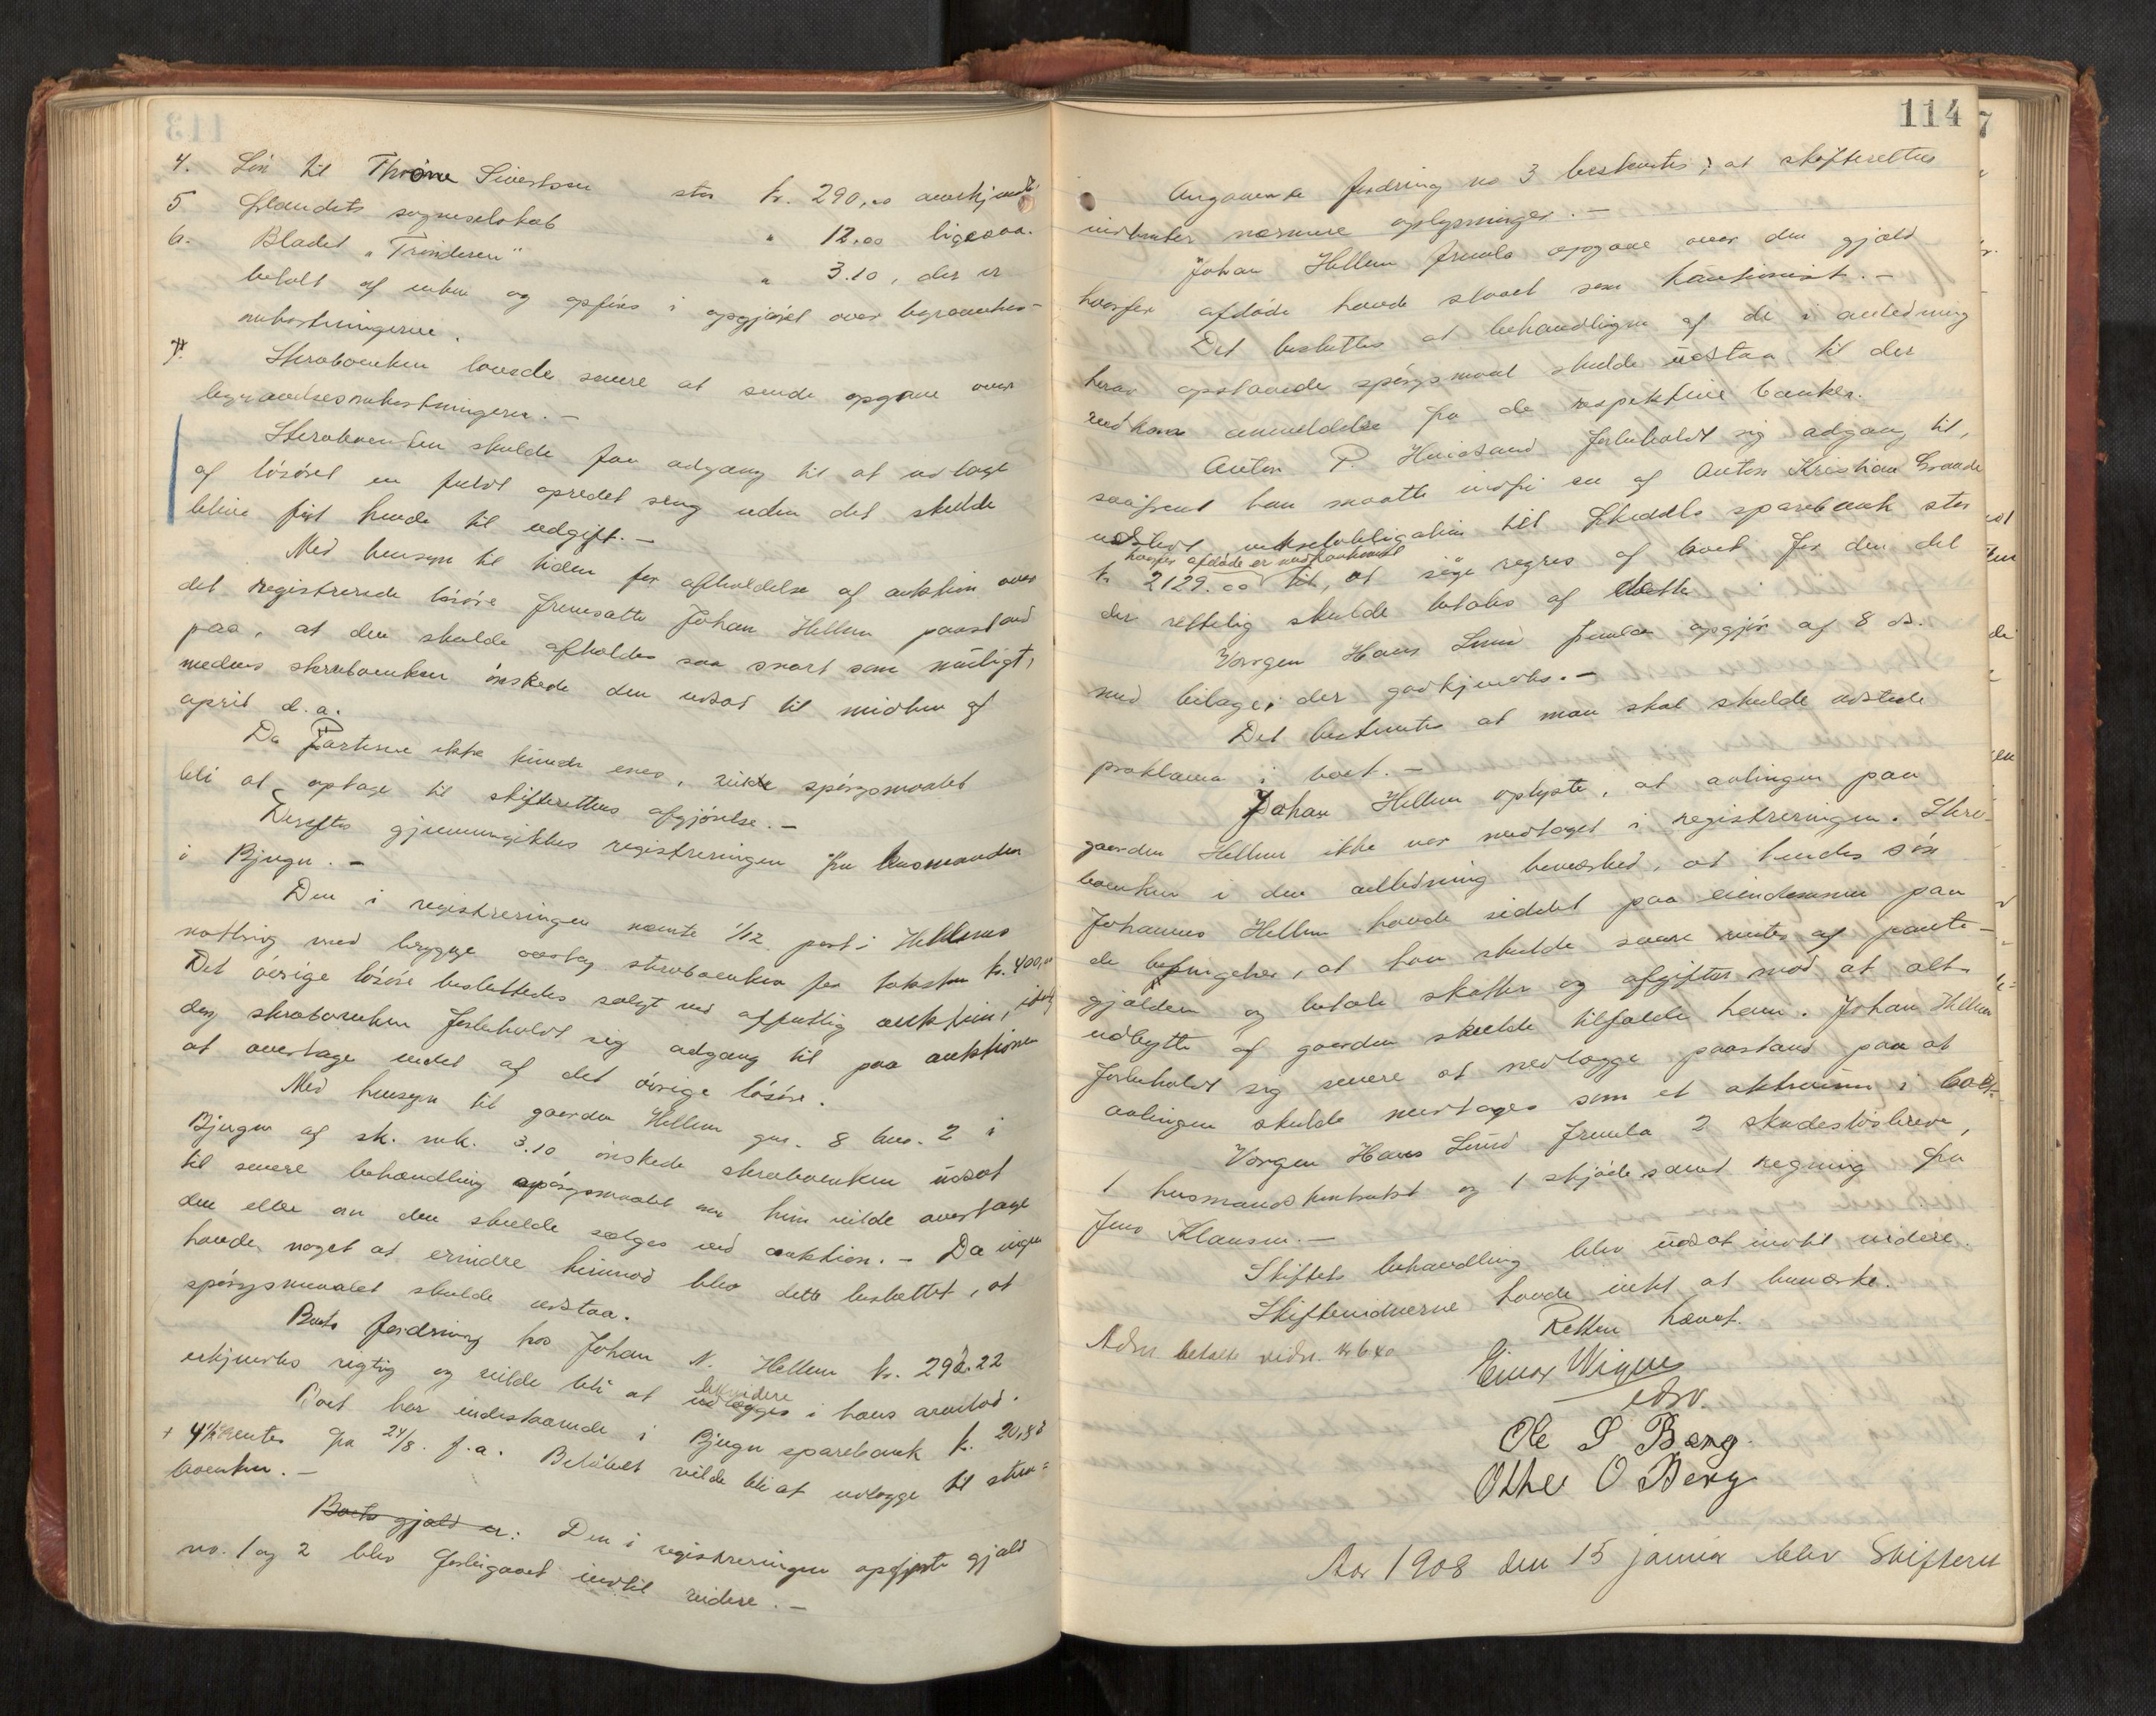 113
4. Løn til Throne Sivertsen stor kr. 290,00 anerkjendt.
5 Ørlandets sogneselskab " 12.00 ligesaa.
6. Bladet "Trønderen" " 3.10, der er
betalt af enken og opføres i opgjøret over begravelses-
omkostningerne.
7. Skrøboenken lovede senere at sende opgave over
begravelsesomkostningerne. -
skulde faa adgang til at udtage
af løsøret en fuldt opredet seng uden det skulde
blive ført hende til udgift. -
Med hensyn til tiden for afholdelse af auktion over
det registrerede løsøre fremsatte Johan Hellem paastand
paa, at den skulde afholdes saa snart som muligt,
medens ønskede den udsat til midten af
april d.a.
Da Parterne ikke kunde enes, vilde spørgsmaalet
bli at optage til skifterettens afgjørelse. -
Derefter gjennemgikkes registreringen fra lensmanden
i Bjugn. -
Den i registreringen nævnte 1/12 part i Hellems
notbrug med brygge overtog for taksten kr. 400,00
Det øvrige løsøre besluttedes solgt ved offentlig auktion,
dog forbeholdt sig adgang til paa auktionen
at overtage endel af det øvrige løsøre.
Med hensyn til gaarden Hellem gnr. 8 bno. 2 i
Bjugn af sk. mk. 3.10 ønskede udsat
til senere behandling spørgsmaalet om hun vilde overtage
den eller om den skulde sælges ved auktion. - Da ingen
havde noget at erindre herimod blev dette besluttet, at
spørgsmaalet skulde udstaa.
Boets fordring hos Johan N. Hellem kr. 292.22
erkjendtes rigtig og vilde bli at likvidere
udlægges i hans arvelod.
Boet har indestaaende i Bjugn sparebank kr. 20,88
+ renter fra 24/8 f.a. Beløbet vilde bli at udlægge til
boenken. -
Boets gjæld er: Den i registreringen opførte gjæld
no. 1 og 2 blev forbigaaet indtil videre. -
114
Angaaende fordring no 3 bestemtes, at skifteretten
indhenter nærmere oplysninger. -
Johan Hellem fremla opgave over den gjæld
hvorfor afdøde havde staaet som kautionist. -
Det besluttes at behandlingen af de i anledning
herav opstaaede spørgsmaal skulde udstaa til der
indkom anmeldelse fra de respektive banker.
Anton P. forbeholdt sig adgang til,
saafremt han maatte indfri en af Anton Kristian Grande
udstedt vekselobligation til sparebank stor
hvorfor afdøde er medkautionist
kr. 2129.00 til, at søge regres af boet for den del
der rettelig skulde betales af dette.
Vergen Hans Lund fremla opgjør af 8 ds.
med bilage, der godkjendtes. -
Det bestemtes at man skal skulde udstede
proklama i boet. -
Johan Hellem oplyste, at avlingen paa
gaarden Hellem ikke var medtaget i registreringen.
boenken i den anledning bemærked, at hendes søn
Johannes Hellem havde siddet paa eiendommen paa
de betingelser, at han skulde svare renter af pante-
gjælden og betale skatter og afgifter mod at alt
udbytte af gaarden skulde tilfalde ham. Johan Hellem
forbeholdt sig senere at nedlægge paastand paa at
avlingen skulde medtages som et aktivum i boet.
Vergen Hans Lund fremla 2 skadesløsbreve,
1 husmandskontrakt og 1 skjøde samt regning fra
Jens Klausen. -
Skiftets behandling blev udsat indtil videre.
Skiftevidnerne havde intet at bemærke.
Retten hævet.
betalt vidn.
Einar
edsv.
Ole S Berg.
Othel O Berg
Aar 1908 den 15 januar blev Skifteret